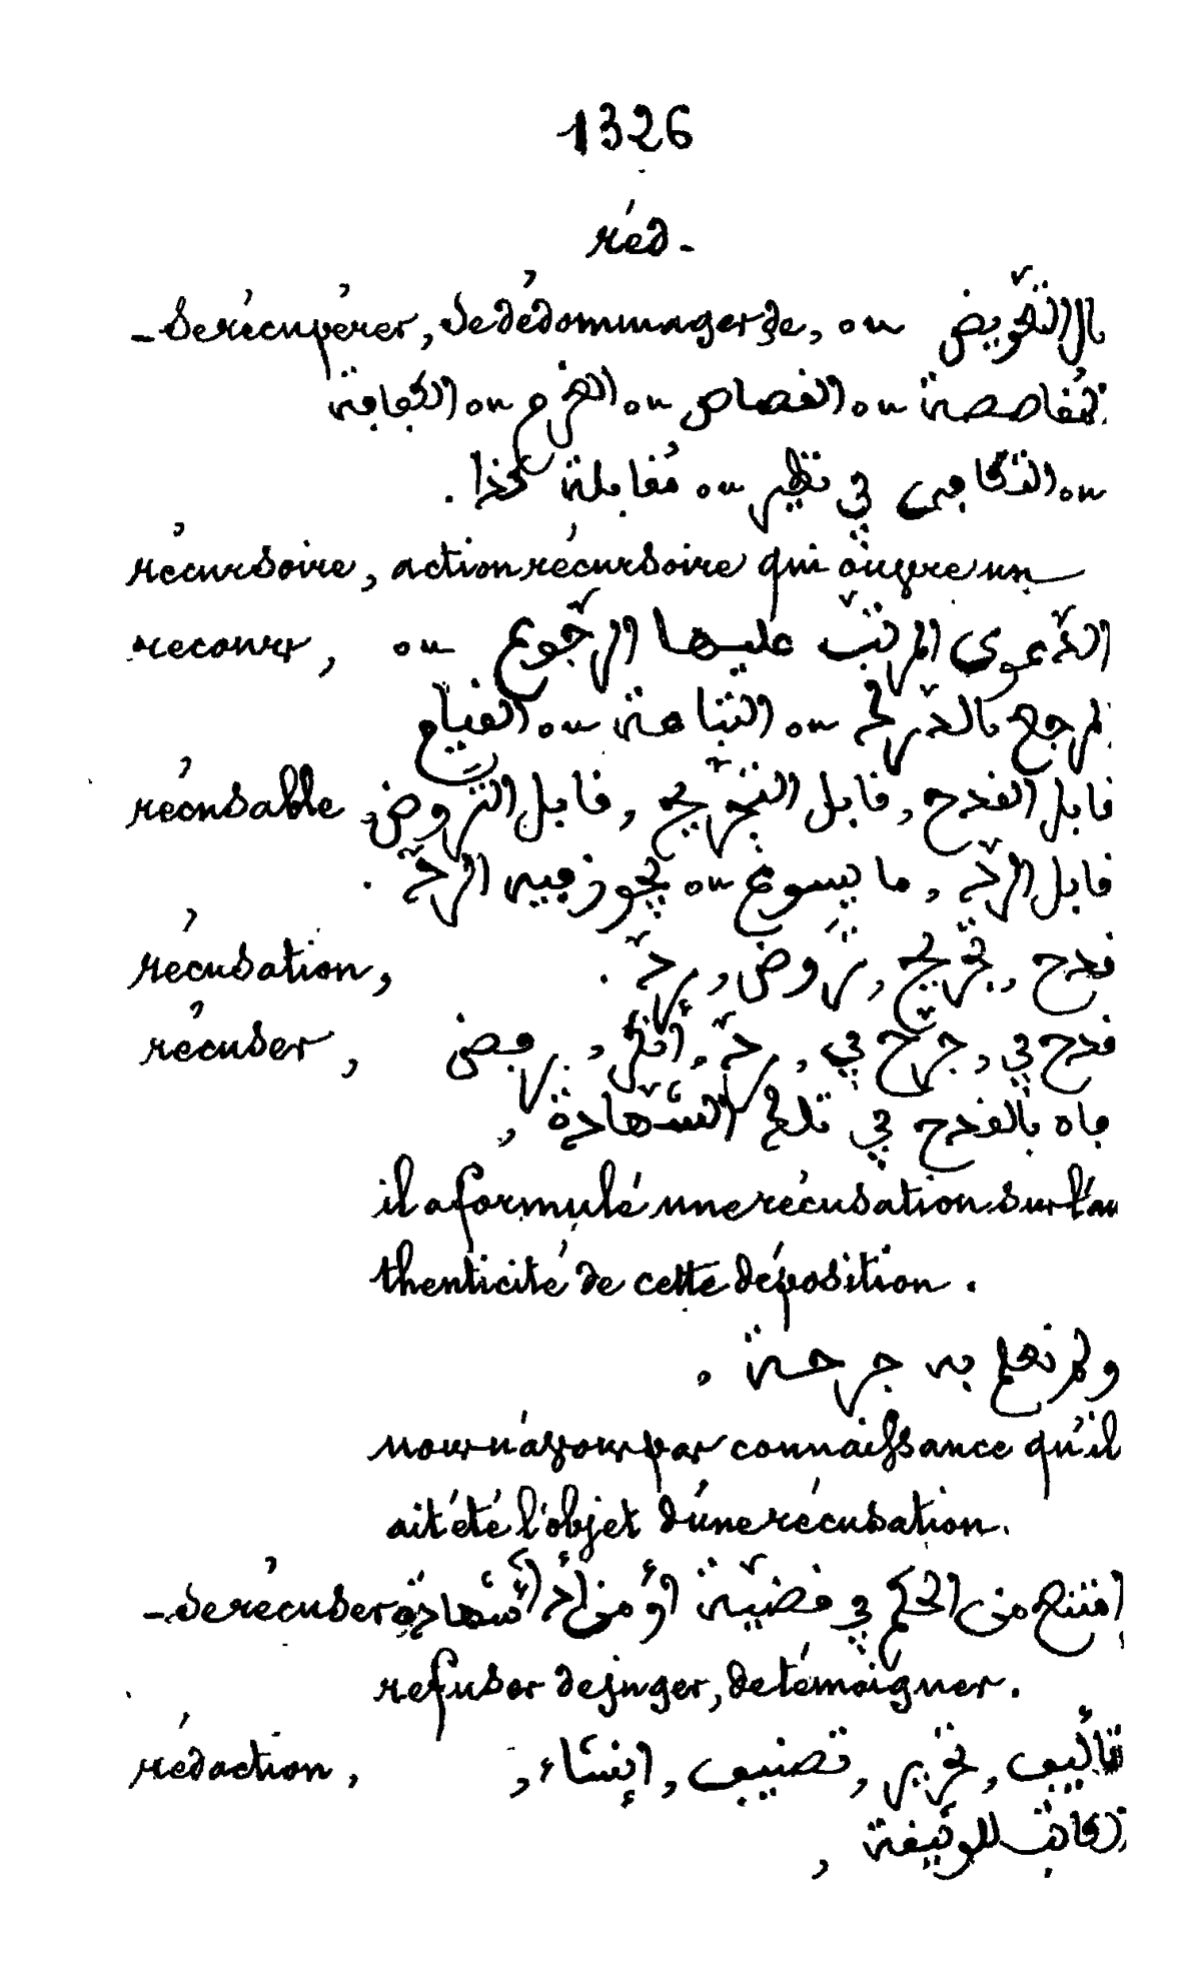 1326
réd-
- se récupérer, se dédommager de, ou بالتّعويض
المُقاصصة ou القصاص ou الغرم ou
ou في نظير ou مُقابلة كذا .
récursoire, action récursoire qui ouvre un
recours, ou الدّعوى المرتّب عليها الرّجوع
المرجع بالدّرك ou التباعة ou القيام
récusable قابل القدح , قابل التّجريح , قابل
قابل الردّ , ما يسوغ ou يجوز فيه الردّ .
récusation, قدح , تجريح , , ردّ .
récuser, قدح في , جرّح في , ردّ , أنكر , رفض
فاه بالقدح في تلك الشّهادة ,
il a formulé une récusation sur l'au
thenticité de cette déposition .
ولم نعلم به جرحة ,
nous n'avons pas connaissance qu'il
ait été l'objet d'une récusation.
- se récuser إمتنع من الحكم في قضيّة أو من أداء شهادة
refuser de juger, de témoigner.
rédaction, تأليف , تحرير , تصنيف , إنشاء ,
الكاتب للوثيقة ,